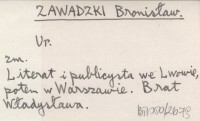 ZAWADZKI Bronisław.
Ur.
zm.
Literat i publicysta we Lwowie,
potem w Warszawie. Brat
Władysława.